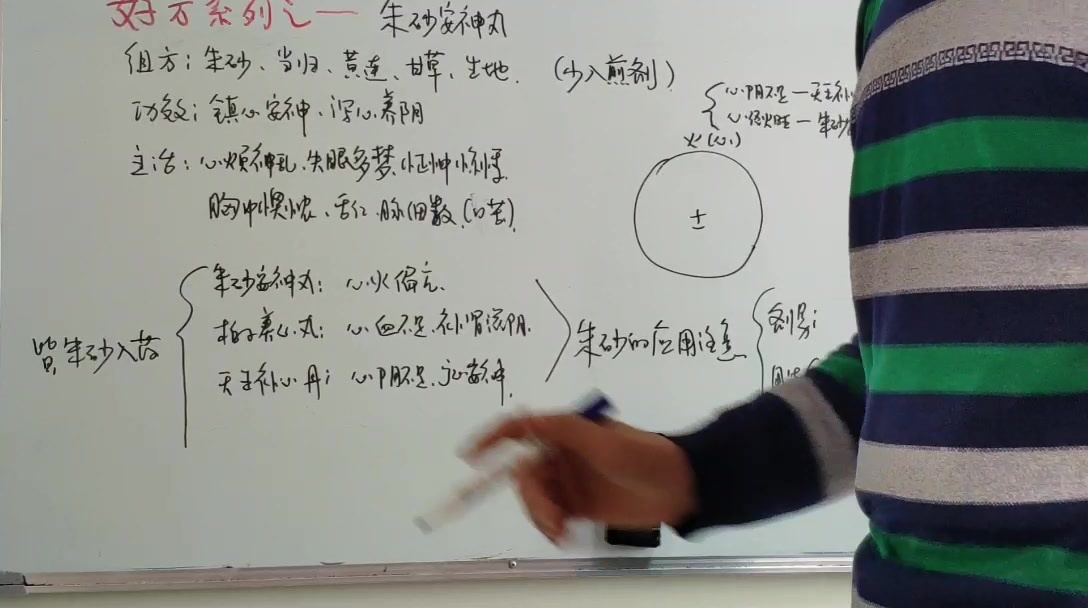 好方系列之一 朱砂安神丸
组方：朱砂、当归、黄连、甘草、生地. (少入煎剂)
功效：镇心安神、泻心养阴
主治：心烦神乱、失眠多梦、怔忡惊悸.
胸中懊憹、舌红、脉细数.
心阴不足—天王补
心经火旺—朱砂
火(心)
土
皆朱砂入药
朱砂安神丸：心火偏亢.
柏子养心丸：心血不足、补肾滋阴.
天王补心丹：心阴不足、安神.
朱砂的应用注意
剂量：